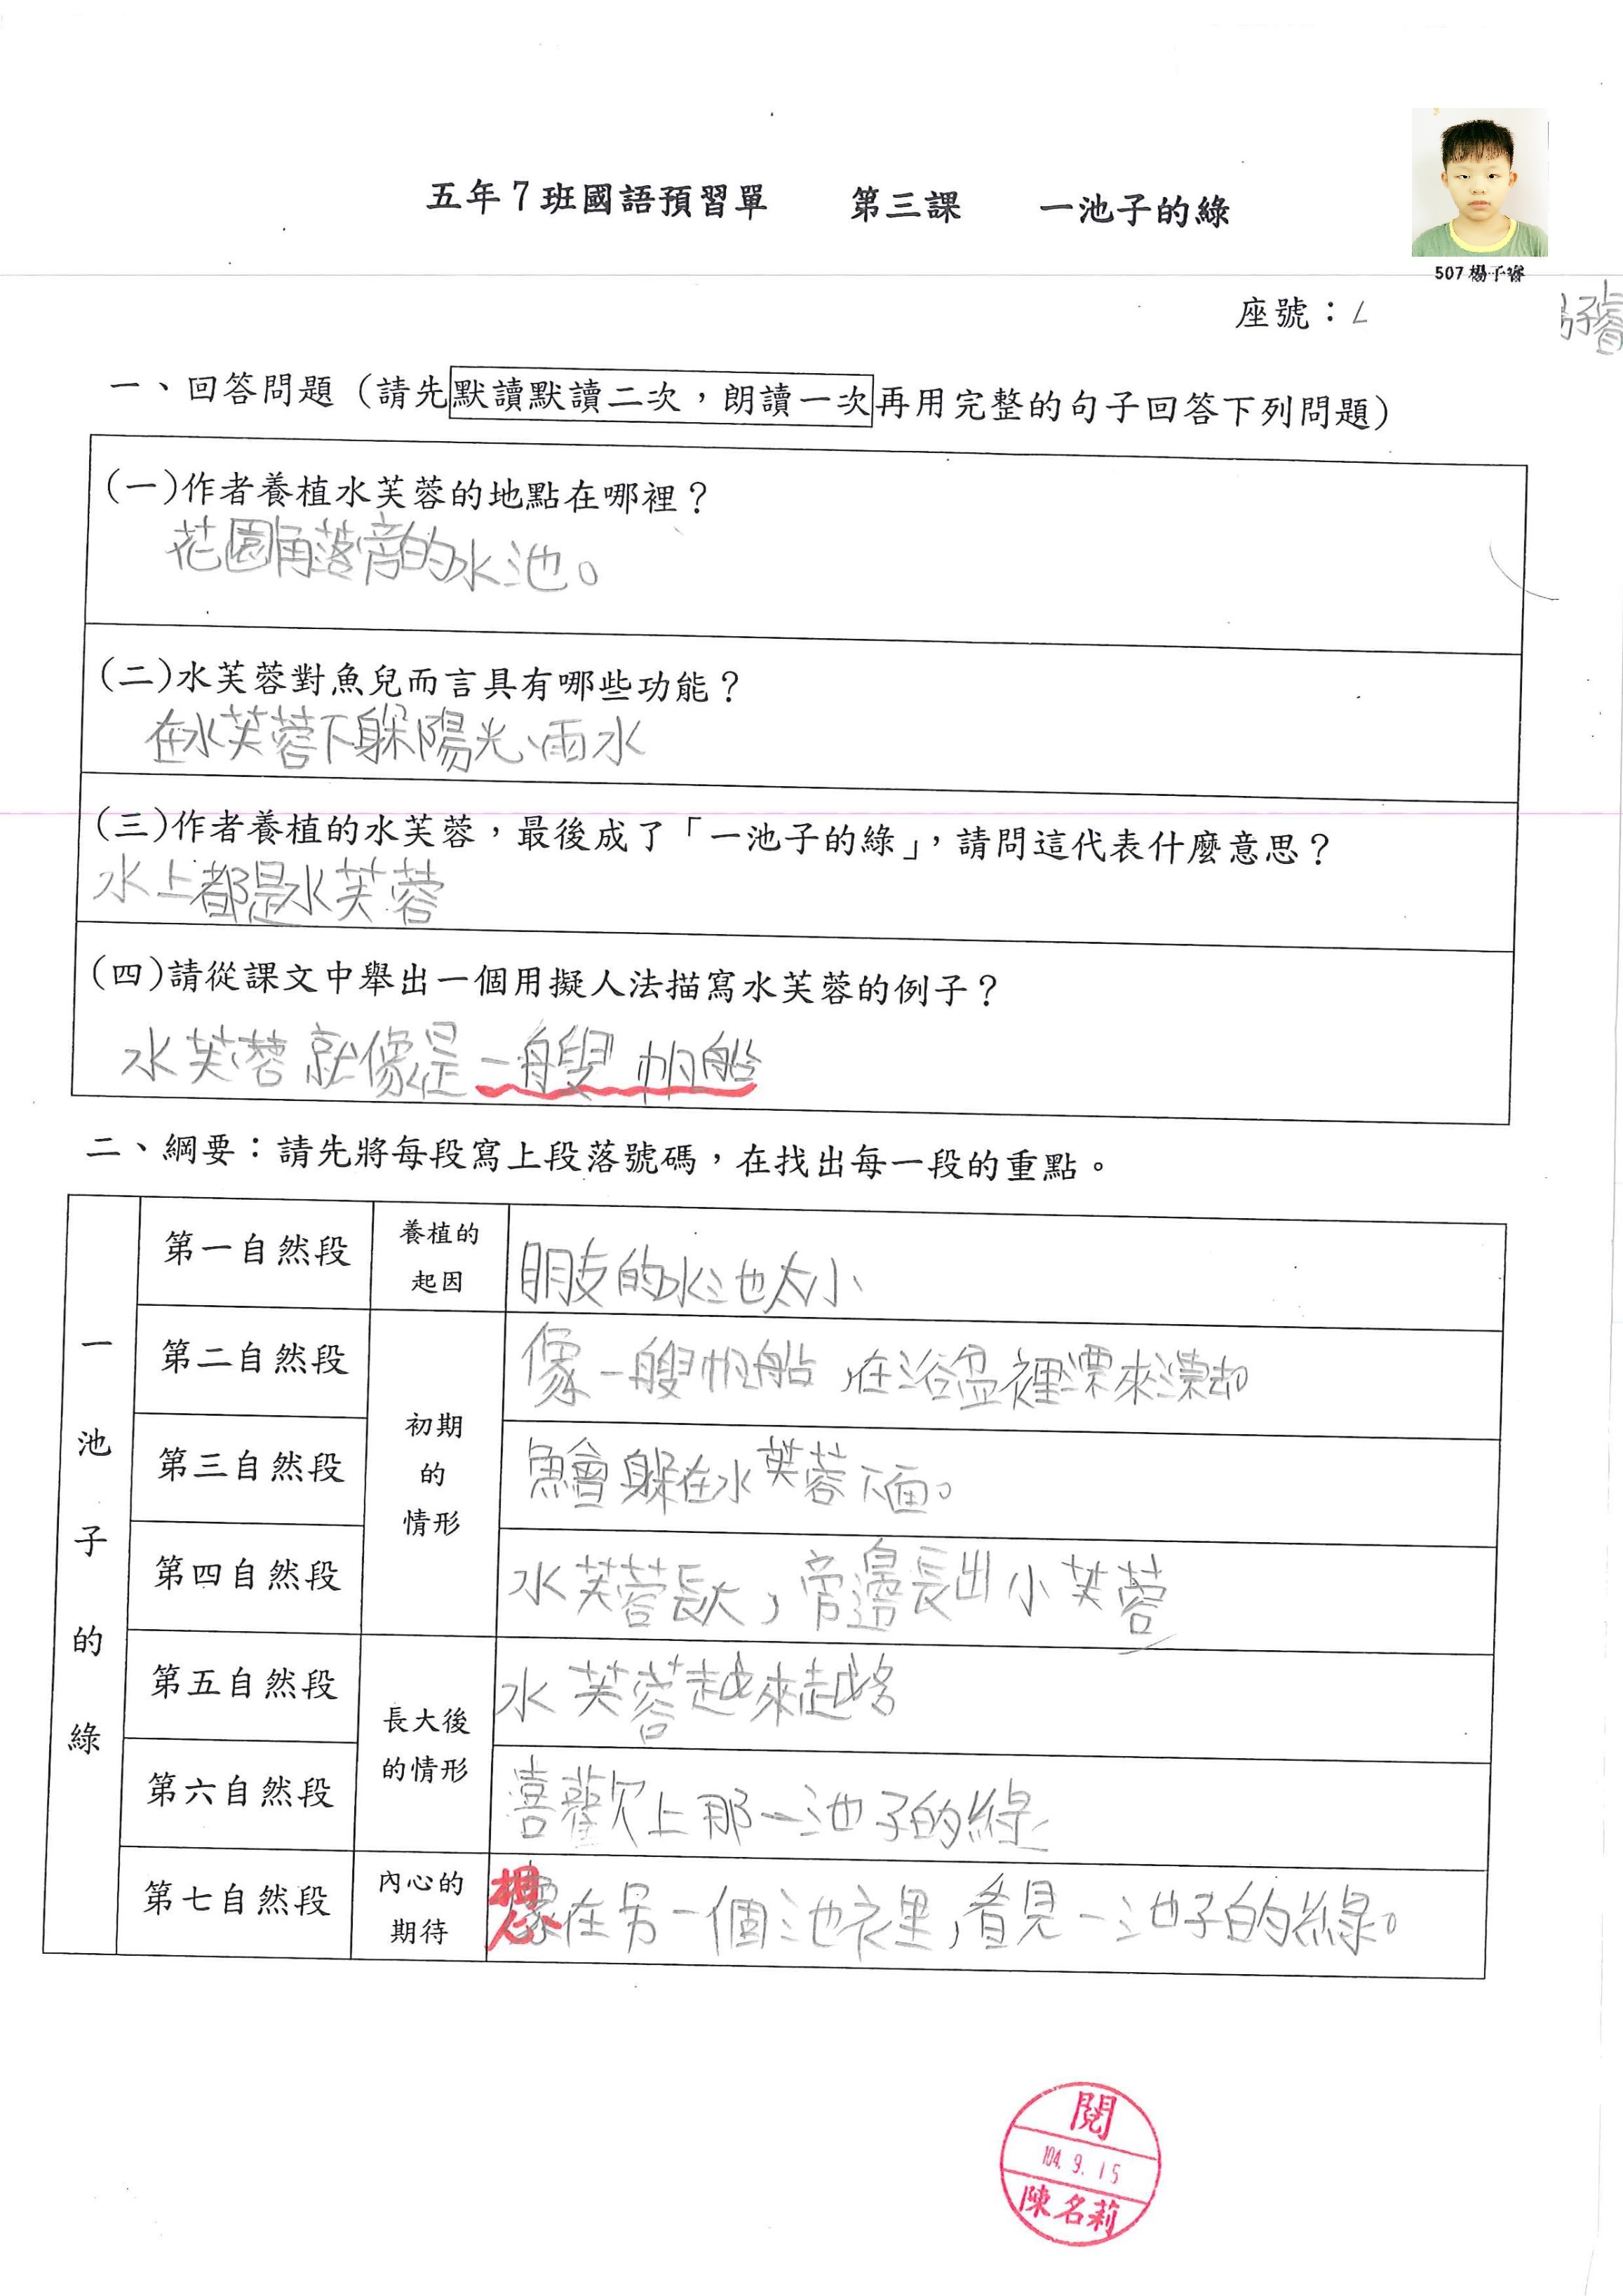 五年7班國語預習單　第三課　一池子的綠
507 楊子睿
座號：
子睿
一、回答問題（請先默讀默讀二次，朗讀一次再用完整的句子回答下列問題）
(一)作者養植水芙蓉的地點在哪裡？
花園角落旁的水池。
(二)水芙蓉對魚兒而言具有哪些功能？
在水芙蓉下躲陽光、雨水
(三)作者養植的水芙蓉，最後成了「一池子的綠」，請問這代表什麼意思？
水上都是水芙蓉
(四)請從課文中舉出一個用擬人法描寫水芙蓉的例子？
水芙蓉就像是一艘帆船
二、綱要：請先將每段寫上段落號碼，在找出每一段的重點。
一池子的綠
第一自然段 養植的起因 朋友的水池太小
第二自然段 初期的情形 像一艘帆船，在浴盆裡漂來漂去
第三自然段 魚會躲在水芙蓉下面。
第四自然段 水芙蓉長大，旁邊長出小芙蓉
第五自然段 長大後的情形 水芙蓉越來越多
第六自然段 喜歡上那一池子的綠
第七自然段 內心的期待 想像在另一個池裡，看見一池子的綠。
閱
104.9.15
陳名莉